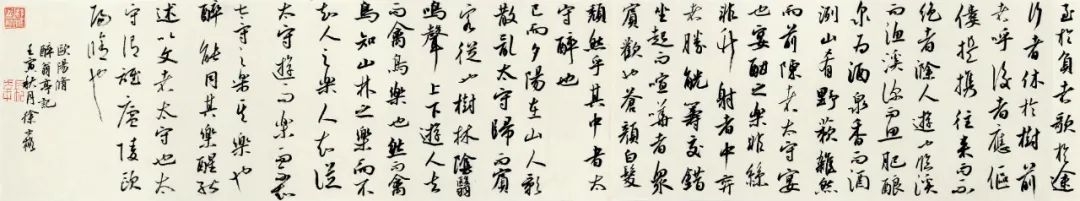 至於負者歌於途
行者休於樹前
者呼後者應傴
僂提攜往来而不
绝者滁人遊也臨溪
而漁溪深而魚肥釀
泉为酒泉香而酒
洌山肴野蔌雜然
而前陳者太守宴
也宴酣之樂非絲
非竹射者中弈
者勝觥籌交錯
坐起而喧譁者眾
賓歡也蒼顏白髮
頹然乎其中者太
守醉也
已而夕陽在山人影
散亂太守歸而賓
客從也樹林陰翳
鳴聲上下遊人去
而禽鳥樂也然而禽
鳥知山林之樂而不
知人之樂人知從
太守遊而樂而不知
太守之樂其樂也
醉能同其樂醒能
述以文者太守也太
守谓誰廬陵歐
陽脩也
歐陽脩
醉翁亭記
壬寅秋月徐